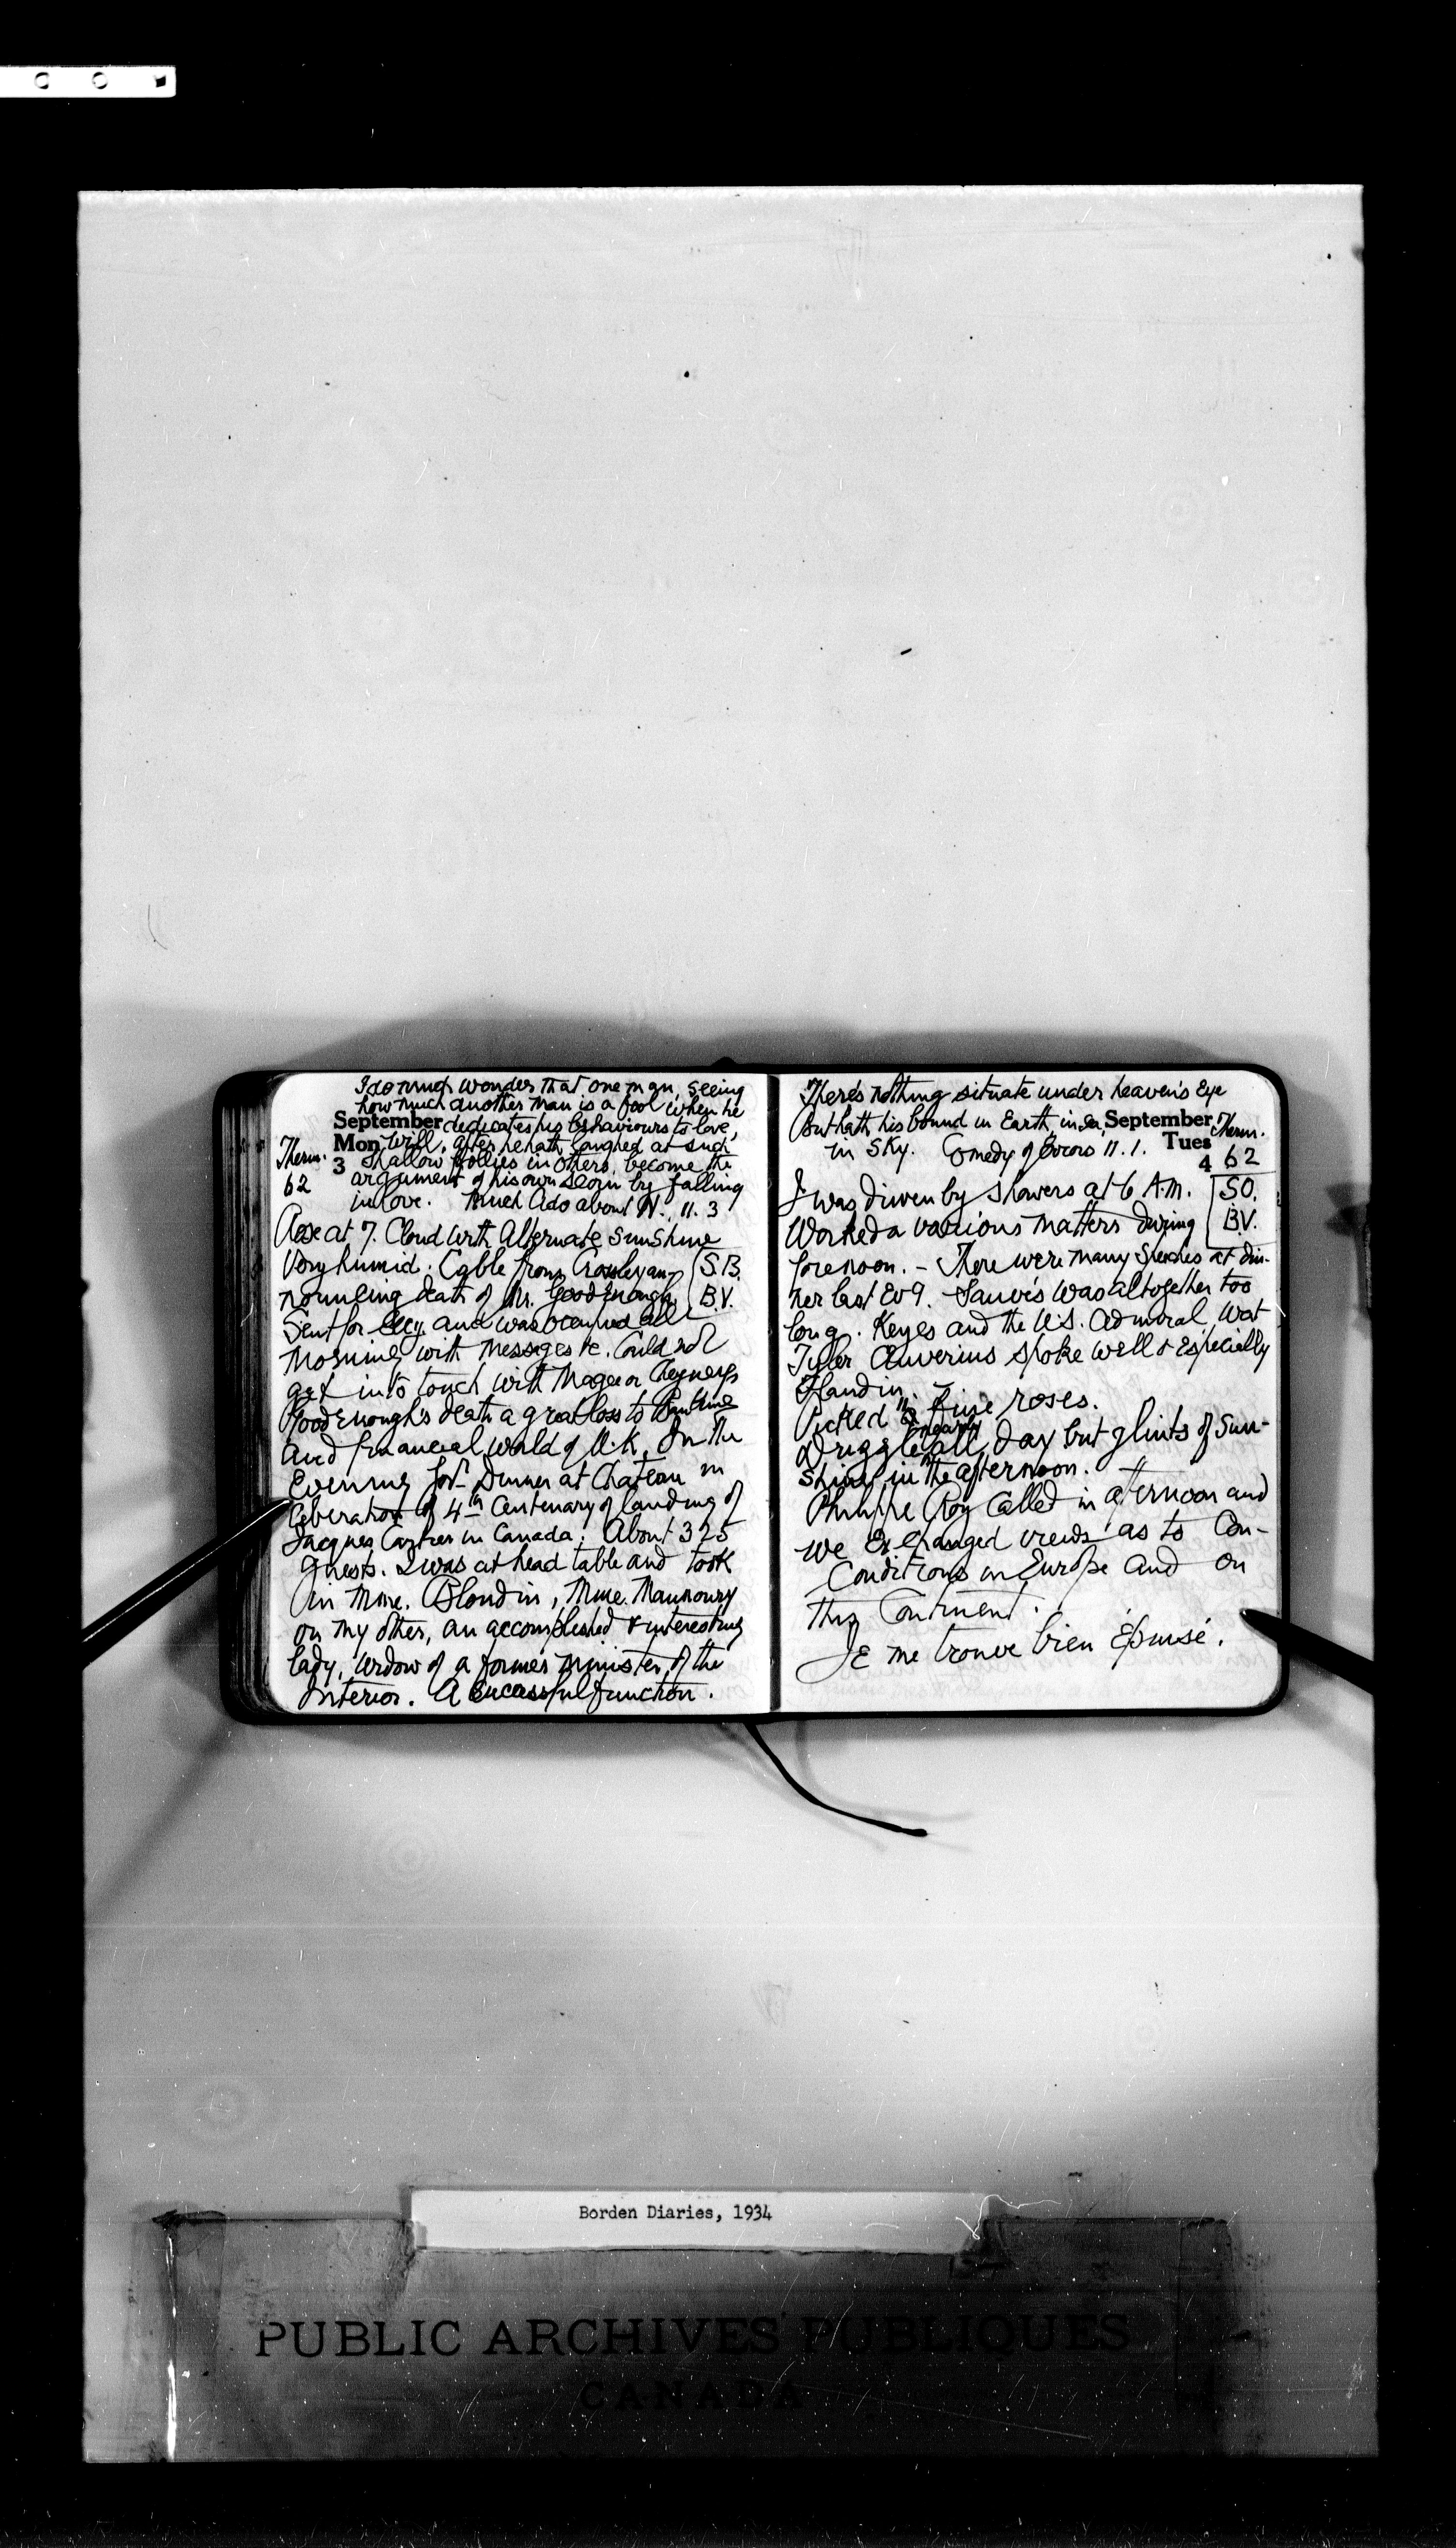 I do much wonder that one man, seeing
how much another man is a fool when he
September dedicates his behaviours to love,
Mon will, after he hath laughed at such
Therm. 3 shallow follies in others, become the
62 argument of his own scorn by falling
in love. Much Ado about N. 11. 3
Rose at 7. Cloud with Alternate Sunshine
Very humid. Cable from Crossley an- S.B.
nouncing death of Mr. Goodenough. B.V.
Sent for Secy. and was occupied all
Morning with messages &c. Could not
get into touch with Magee or
Goodenough's death a great loss to
and financial world of U.K. In the
Evening Govt Dinner at Chateau in
Celebration of 4th Centenary of landing of
Jacques Cartier in Canada. About 325
guests. I was at head table and took
in Mme. Blondin, Mme. Maunoury
on my other, an accomplished & interesting
lady, widow of a former minister of the
Interior. A Successful function.
There's nothing situate under heaven's Eye
But hath his bound in Earth, in Sea, September Therm.
in Sky. Comedy of Errors 11. 1. Tues
4 62
I was driven by showers at 6 A.M. SO.
Worked a various matters during B.V.
forenoon. - There were many Speeches at din-
ner last Ev9. Sauvé's was altogether too
long. Keyes and the U.S. Admiral, Wat
Tyler Cluverius spoke well & Especially
Flandin.
Picked fine roses.
Drizzle nearly all day but glints of Sun-
shine in the afternoon.
Philippe Roy Called in afternoon and
we Exchanged views as to Con-
Conditions in Europe and on
this Continent.
Je me trouve bien Épuisé.
Borden Diaries, 1934
PUBLIC ARCHIVES PUBLIQUES
CANADA